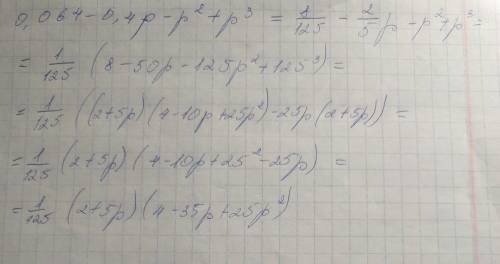 0,064 - 0,4p - p² + p³ = 8/125 - 2/5 p - p² + p³ =
= 1/125 (8 - 50p - 125p² + 125³) =
= 1/125 ((2+5p)(4-10p+25p²) - 25p(2+5p)) =
= 1/125 (2+5p)(4-10p+25² - 25p) =
= 1/125 (2+5p)(4-35p+25p²)